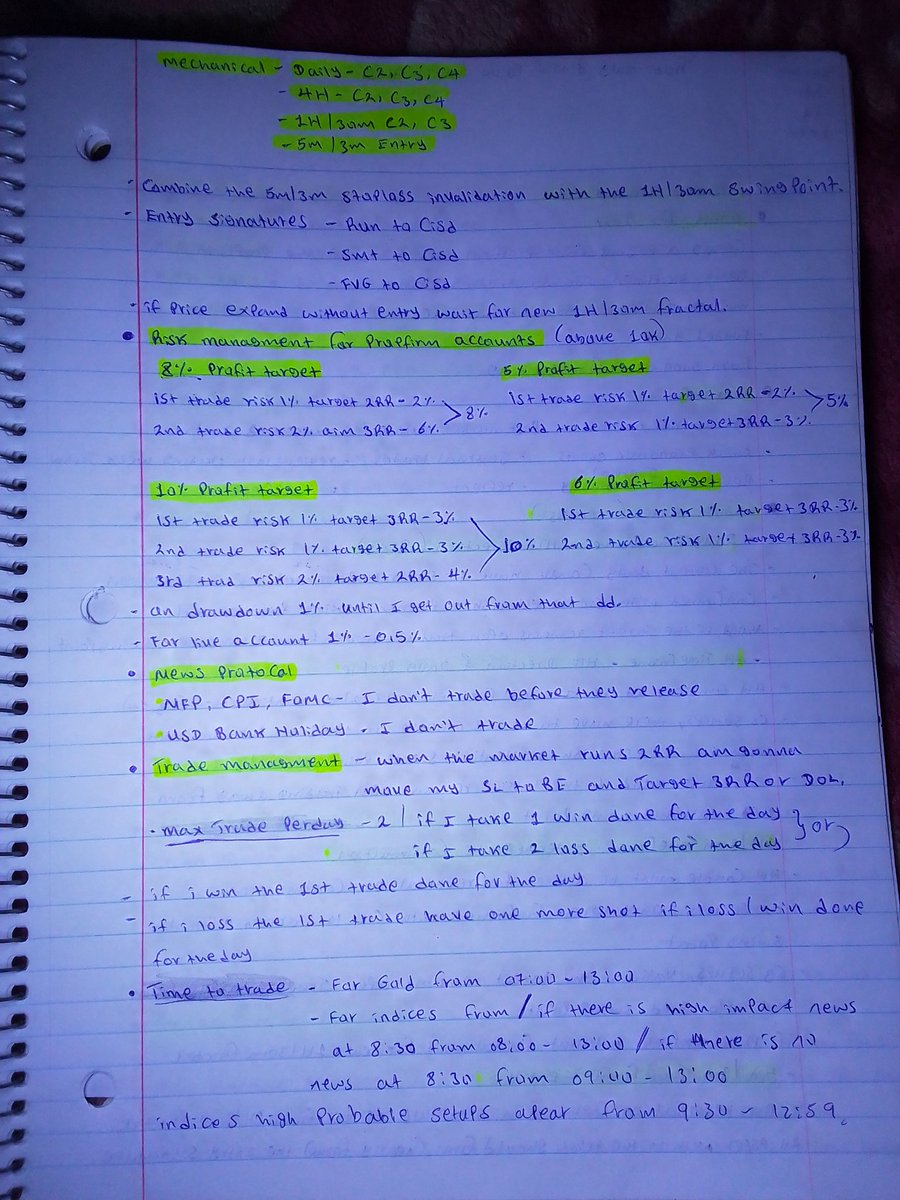 Mechanical - Daily - C2, C3, C4
- 4H - C2, C3, C4
- 1H/30m C2, C3
- 5m/3m Entry
- Combine the 5m/3m stoploss invalidation with the 1H/30m swing Point.
- Entry signatures - Run to Cisd
- Smt to Cisd
- FVG to Cisd
- if Price expand without entry wait for new 1H/30m fractal.
• Risk managment for Propfirm accounts (above 10K)
8% Profit target
1st trade risk 1% target 2RR - 2%
2nd trade risk 2% aim 3RR - 6%
> 8%
5% Profit target
1st trade risk 1% target 2RR - 2%
2nd trade risk 1% target 3RR - 3%
> 5%
10% Profit target
1st trade risk 1% target 3RR - 3%
2nd trade risk 1% target 3RR - 3%
3rd trad risk 2% target 2RR - 4%
> 10%
6% Profit target
1st trade risk 1% target 3RR - 3%
2nd trade risk 1% target 3RR - 3%
- on drawdown 1% until I get out from that dd.
- For live account 1% - 0.5%
• News Protocal
• NFP, CPI, FOMC - I don't trade before they release
• USD Bank Holiday - I don't trade
• Trade managment - when the market runs 2RR am gonna
move my SL to BE and Target 3RR or DOL.
• max Trade Perday - 2 / if I take 1 win done for the day
if I take 2 loss done for the day } or
- if i win the 1st trade done for the day
- if i loss the 1st trade have one more shot if i loss / win done
for the day
• Time to trade - For Gold from 07:00 - 13:00
- For indices from / if there is high impact news
at 8:30 from 08:00 - 13:00 / if there is no
news at 8:30 from 09:00 - 13:00
indices high Probable setups apear from 9:30 - 12:59.